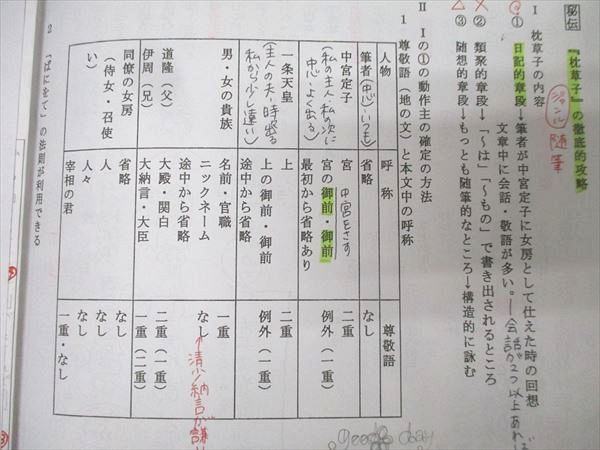 秘伝 『枕草子』の徹底的攻略
ジャンル 随筆
Ⅰ 枕草子の内容
① 日記的章段→筆者が中宮定子に女房として仕えた時の回想
文章中に会話・敬語が多い。
会話が2つ以上あれば
② 類聚的章段→「〜は」「〜もの」で書き出されるところ
③ 随想的章段→もっとも随筆的なところ→構造的に詠む
Ⅱ Ⅰの①の動作主の確定の方法
1 尊敬語(地の文)と本文中の呼称
人物 呼称 尊敬語
筆者(中心)いつも 省略 なし
中宮定子 宮 中宮をさす 二重
(私の主人・私の次に中心・よく出る) 宮の御前・御前 例外(一重)
最初から省略あり
一条天皇 上 二重
(主人の夫,時々出る 私から少し遠い) 上の御前・御前 例外(一重)
途中から省略
男・女の貴族 名前・官職 一重
ニックネーム なし
清少納言が謙
途中から省略
道隆(父) 大殿・関白 二重(一重)
伊周(兄) 大納言・大臣 一重(二重)
同僚の女房 省略 なし
(侍女・召使い) 人 なし
人々 なし
宰相の君 一重・なし
2 「ばにをて」の法則が利用できる
good day